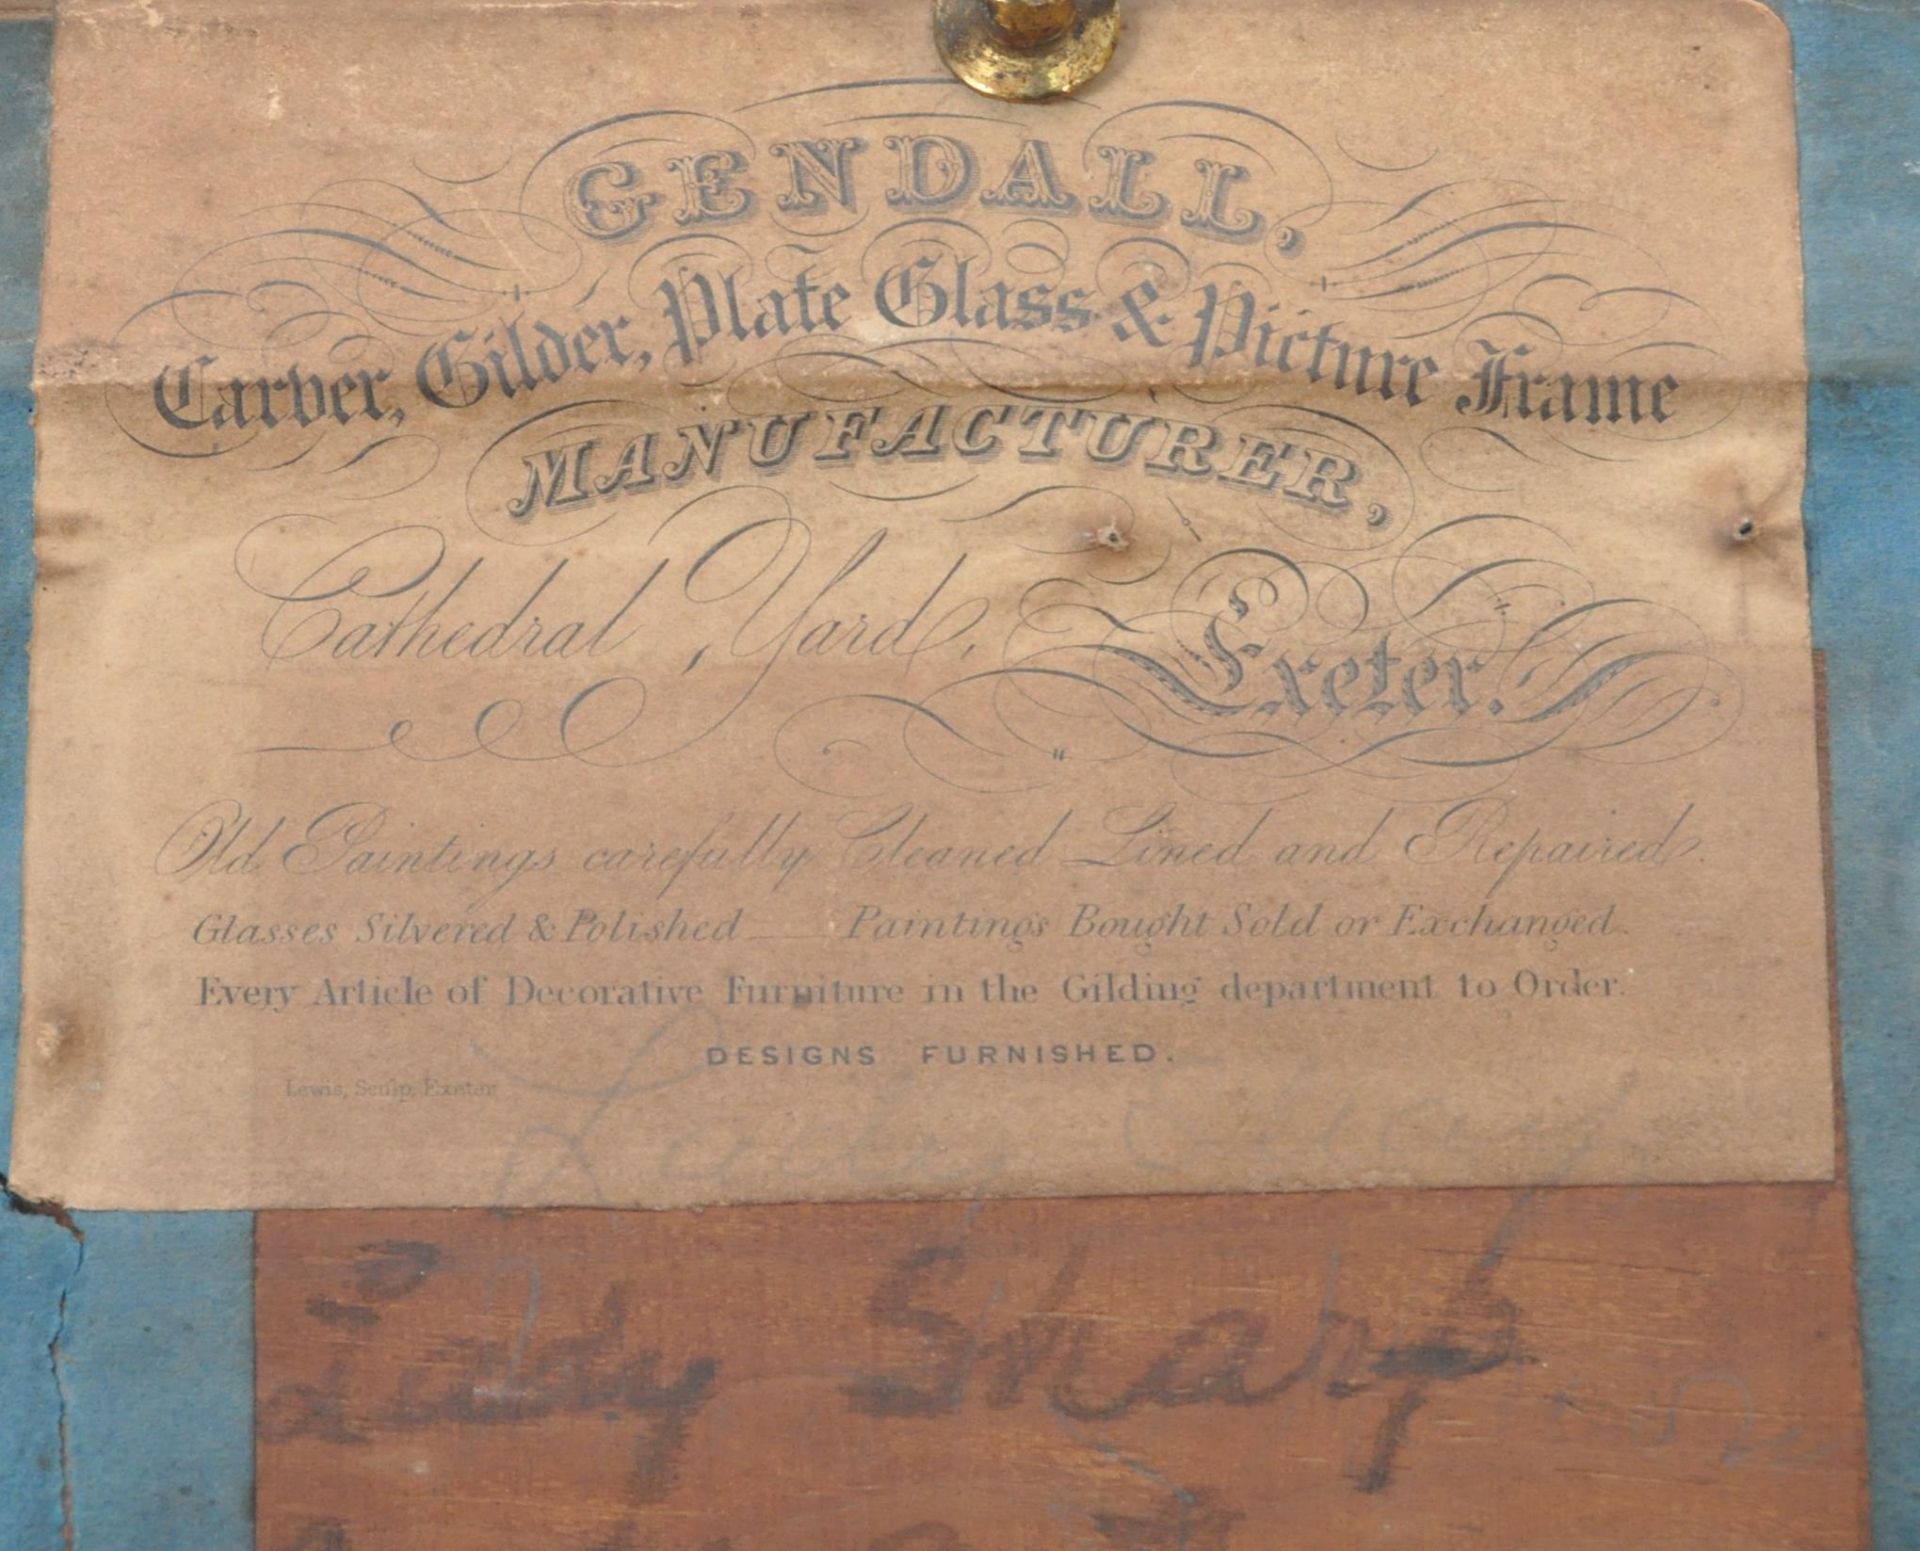 GENDALL,
Carver, Gilder, Plate Glass & Picture Frame
MANUFACTURER,
Cathedral Yard, Exeter.
Old Paintings carefully Cleaned Lined and Repaired.
Glasses Silvered & Polished — Paintings Bought Sold or Exchanged.
Every Article of Decorative Furniture in the Gilding department to Order.
DESIGNS FURNISHED.
Lewis, Sculp, Exeter
Lady
Lady Sharp